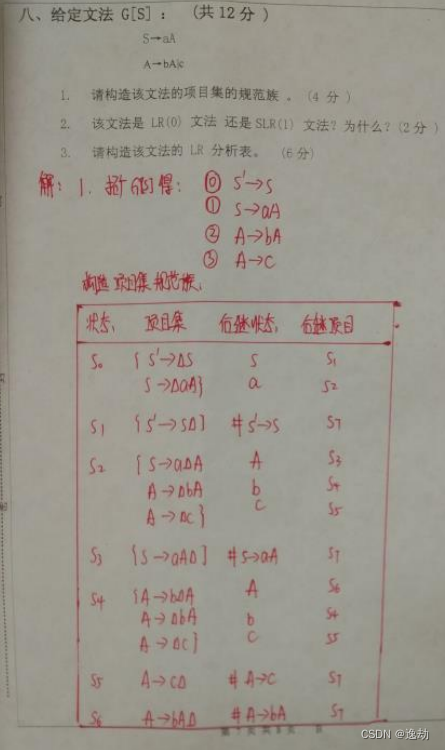 八、给定文法 G[S] : (共 12 分 )
S→aA
A→bA|c
1. 请构造该文法的项目集的规范族 。(4 分 )
2. 该文法是 LR(0) 文法 还是SLR(1) 文法? 为什么? (2 分 )
3. 请构造该文法的 LR 分析表。 (6 分)
解: 1. 拓广G[S]得: ⓪ S'→S
① S→aA
② A→bA
③ A→c
构造项目集规范族:
状态: 项目集 后继状态: 后继项目
S₀ { S'→ΔS S S₁
S→ΔaA} a S₂
S₁ {S'→SΔ} #S'→S S₇
S₂ {S→aΔA A S₃
A→ΔbA b S₄
A→Δc } c S₅
S₃ {S→aAΔ} #S→aA S₇
S₄ {A→bΔA A S₆
A→ΔbA b S₄
A→Δc} c S₅
S₅ A→cΔ #A→c S₇
S₆ A→bAΔ #A→bA S₇
CSDN @逸劫